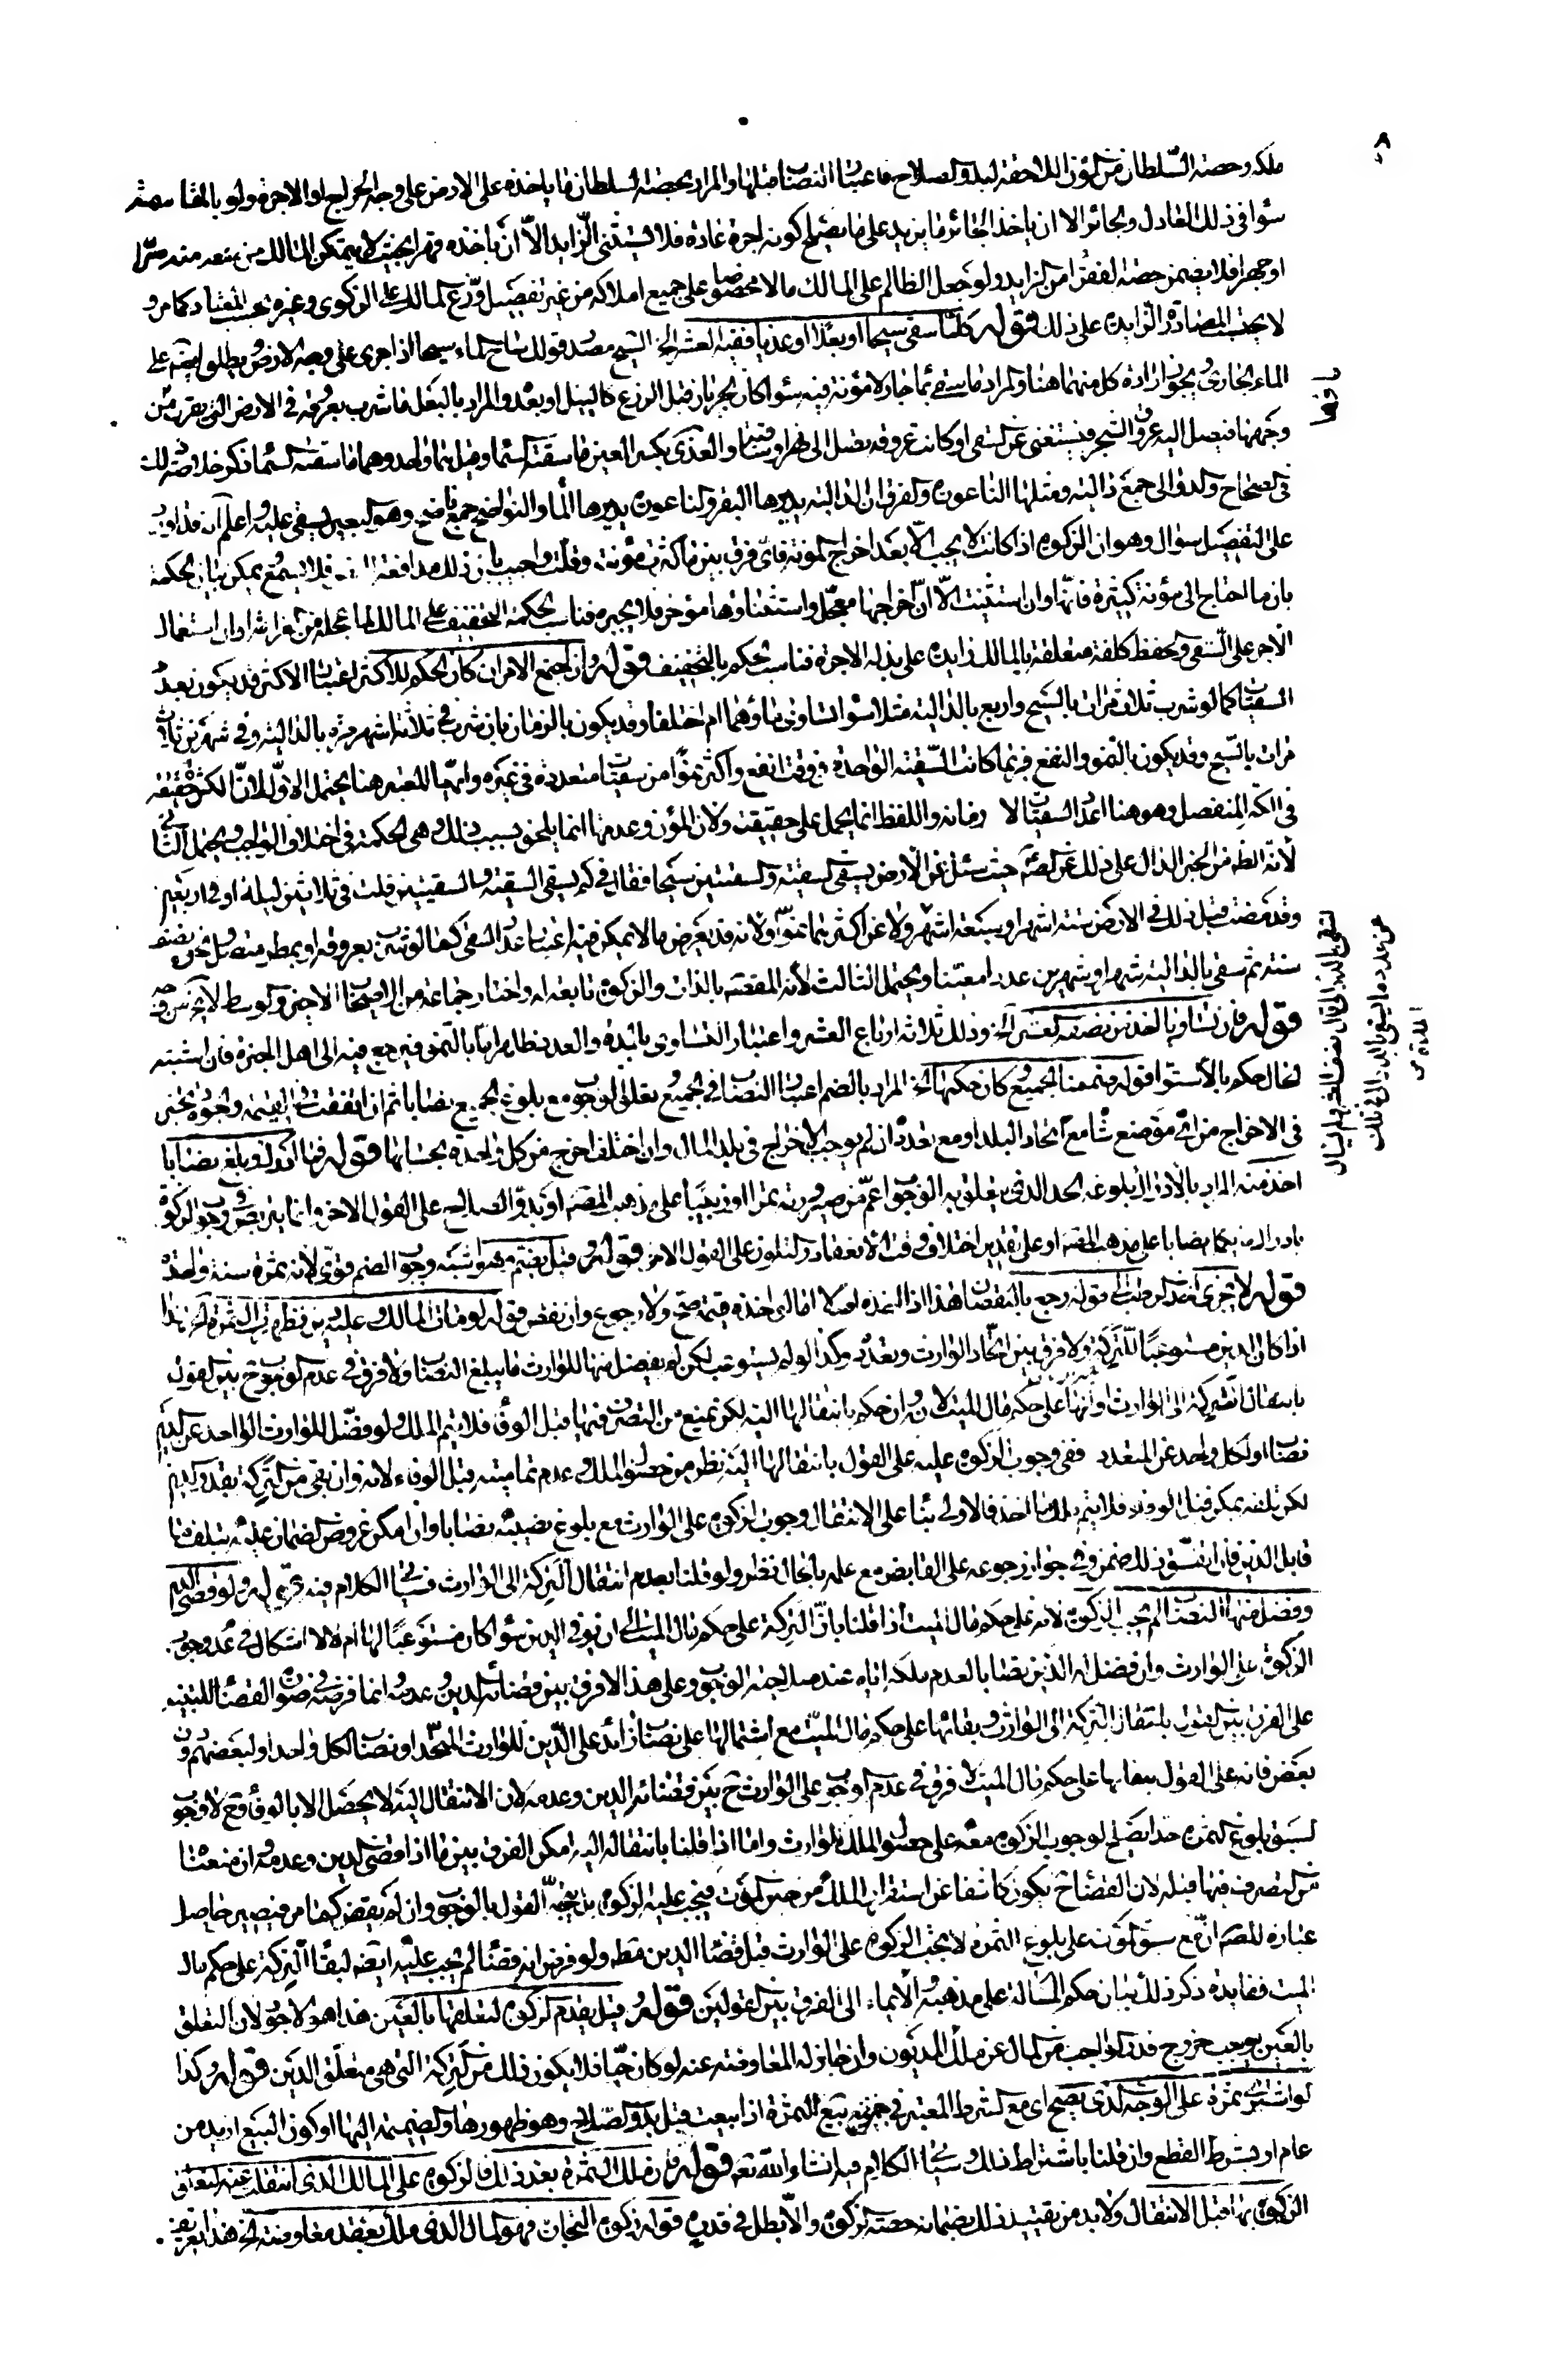 ملكه وحصة السلطان من المؤن اللاحقة لبدو الصلاح فاعتبار النصاب قبلها والمراد بحصة السلطان ما ياخذه على الارض على وجه الخراج او الاجرة ولو بالمقاسمة
سواء في ذلك العادل والجائر الا ان ياخذ الجائر ما يزيد على ما يصلح كونه اجرة عادة فلا يستثنى الزايد الا ان ياخذه قهرا بحيث لا يتمكن المالك من منعه منه سرا
او جهرا فلا يضمن حصة الفقراء من الزايد ولو جعل الظالم على المالك مالا مخصوصا على جميع املاكه من غير تفصيل وزع المالك على الزكوي وغيره بحسب المعتاد كما مر و
لا يحتسب المصادرة الزايدة على ذلك قوله كلما سقي سيحا او بعلا او عذيا ففيه العشر الخ السيح مصدر قولك ساح الماء سيحا اذا جرى على وجه الارض ويطلق ايضا على
الماء الجاري ويجوز ارادة كل منهما هنا والمراد ما سقي بماء جار لا مؤنة فيه سواء كان الجريان قبل الزرع كالنيل او بعده والمراد بالبعل ما شرب بعروقه في الارض التي يقرب من
وجهها فيصل اليه عروق الشجر فيستغني عن السقي او كانت عروقه تصل الى نهر او ساقية والعذي بكسر العين ما سقته السماء وقيل هما واحد وهما ما سقته السماء ذكر ذلك
في الصحاح والدوالي جمع دالية ومثلها الناعورة والفرق ان الدالية يديرها البقر والناعورة يديرها الماء والنواضح جمع ناضح وهو البعير يستقى عليه واعلم ان قد اورد
على التفصيل سؤال وهو ان الزكوة اذا كانت لا يجب الا بعد اخراج المؤنة فاي فرق بين ما كثرت مؤنته وقلت واجيب بان ذلك مدافعة النص فلا يسمع يمكن بيان الحكمة
بان ما احتاج الى مؤنة كثيرة فانها وان استثنيت الا ان اخراجها معجل واستثناؤها مؤخر فلا يجبره فناسب الحكمة التخفيف على المالك لما عجله من الغرامة او ان استعمال
الاجر على السقي والحفظ كلفة متعلقة بالمالك زايدة على بذله الاجرة فناسب الحكم بالتخفيف قوله وان اجتمع الامران كان الحكم للاكثر اعتبار الاكثر قد يكون بعدد
السقيات كما لو شرب ثلاث مرات بالسيح واربع بالدالية مثلا سواء تساوى نماؤهما ام اختلفا وقد يكون بالزمان بان شرب في ثلاثة اشهر مرة بالدالية وفي شهرين ثلث
مرات بالسيح وقد يكون بالنمو والنفع فربما كانت السقية الواحدة في وقت انفع واكثر نموا من سقيات متعددة في غيره وايهما المعتبر هنا يحتمل الاول لان الكثرة حقيقة
في الكم المنفصل وهو هنا اعداد السقيات لا زمانه واللفظ انما يحمل على حقيقته ولان المؤن وعدمها انما يلحق بسبب ذلك وهي الحكمة في اختلاف الواجب ويحتمل الثاني
لانه الظاهر من الخبر الدال على ذلك عن الصادق حيث سئل عن الارض يسقى السقية والسقيتين سيحا فقال في كم يسقى السقية والسقيتين قلت في ثلاثين ليلة او اربعين
وقد مضت قبل ذلك في الارض ستة اشهر او سبعة اشهر ولا عن اكثرهما نموا ولانه قد يعرض ما لا يمكن فيه اعتبار عدد السقي كما لو شرب بعروقه او بمطر متصل نحو نصف
سنة ثم سقي بالدالية شهرا او شهرين عددا معينا ويحتمل الثالث لانه المقصد بالذات والزكوة تابعة له واختاره جماعة من اصحابنا الاخير والوسط لا يخ من وجه
قوله فان تساويا اخذ من نصفه العشر الخ وذلك ثلاثة ارباع العشر واعتبار التساوي بالمدة والعدد ظاهر اما بالنمو فيرجع فيه الى اهل الخبرة فان اشتبه
الحال حكم بالاستواء قوله ضممنا الجميع وكان حكمها الخ المراد بالضم اعتبار النصاب في الجميع تعلق الوجوب مع بلوغ الجميع نصابا ثم ان اتفقت في القيمة والجودة تخير
في الاخراج من اي موضع شاء مع اتحاد البلد او مع تعدده ان لم يوجب الاخراج في بلد المال وان اختلف اخرج من كل واحدة بحسابها قوله فما ادرك وبلغ نصابا
اخذ منه المراد بالادراك بلوغه الحد الذي يتعلق به الوجوب اعم من صيرورته تمرا او زبيبا على مذهب المصنف او بدو الصلاح على القول الاخر وانما يتربص في وجوب الزكوة
قوله لا يجزي اخذ الرطب الى قوله رجع بالنقصان هذا اذا اخذه اصلا اما لو اخذه قيمة صح ولا رجوع وان نقص قوله لو مات المالك وعليه دين فظهرت الثمرة الخ هذا
اذا كان الدين مستوعبا للتركة ولا فرق بين اتحاد الوارث وتعدده وكذا لو لم يستوعب لكن لم يفضل منها للوارث ما يبلغ النصاب ولا فرق في عدم الوجوب ح بين القول
بانتقال التركة الى الوارث وانها على حكم مال الميت لانه وان حكم بانتقالها اليه لكن يمنع من التصرف فيها قبل الوفاء فلا يتم الملك ولو فضل للوارث الواحد عن الدين
نصابا او لكل واحد عن المتعدد ففي وجوب الزكوة عليه على القول بانتقالها اليه نظر من حصول الملك وعدم تماميته قبل الوفاء لانه وان بقي من التركة بقدر الدين
لكن تلفه ممكن قبل الوفاء فلا يتم ملك ما اخذ فالاولى بناء على الانتقال وجوب الزكوة على الوارث مع بلوغ نصيبه نصابا وان امكن عروض الضمان عليه بتلف ما
قابل الدين فان اتفق ذلك ضمن وفي جواز رجوعه على القابض مع علمه بالحال نظر ولو قلنا بعدم انتقال التركة الى الوارث فسيأتي الكلام فيه قوله ولو قضى الدين
وفضل منها النصاب لم تجب الزكوة لانها على حكم مال الميت اذا قلنا بان التركة على حكم مال الميت الى ان يوفى الدين سواء كان مستوعبا لها ام لا لا اشكال في عدم وجوب
الزكوة على الوارث وان فضل له الدين نصابا لعدم ملكه اياه عند صلاحية الوجوب وعلى هذا لا فرق بين قضائه الدين وعدمه انما فرضه في صورة القضاء للتنبيه
على الفرق بين القول بانتقال التركة الى الوارث وبقائها على حكم مال الميت مع اشتمالها على نصاب زائد على الدين للوارث المتحد او نصاب لكل واحد او لبعضهم دون
بعض فانه على القول ببقائها على حكم مال الميت لا فرق في عدم الوجوب على الوارث ح بين قضائه الدين وعدمه لان الانتقال اليه لا يحصل الا بالوفاء فلا وجوب
لسبق بلوغ الثمرة حدا يصلح لوجوب الزكوة معه على حصول الملك للوارث واما اذا قلنا بانتقاله اليه امكن الفرق بين ما اذا قضى الدين وعدمه وان منعنا
من تصرفه فيها قبله لان القضاء ح يكون كاشفا عن استقرار الملك من حين الموت فيجب عليه الزكوة بل يتجه القول بالوجوب وان لم يقض كما مر فيصير حاصل
عبارة المصنف انه مع سبق الموت على بلوغ الثمرة لا يجب الزكوة على الوارث قبل قضاء الدين مطلقا ولو فرض انه قضاه لم يجب عليه ايضا لبقاء التركة على حكم مال
الميت ففايدة ذكر ذلك بيان حكم المسالة على مذهبه والايماء الى الفرق بين القولين قوله وقيل يقدم الزكوة لتعلقها بالعين هذا هو الاجود لان التعلق
بالعين يوجب خروج قدر الواجب من المال عن ملك المديون وان جاز له المعاوضة عنه لو كان حيا فلا يكون ذلك من التركة التي هي متعلق الدين قوله وكذا
لو اشترى ثمرة على الوجه الذي يصح اي مع الشرط المعتبر في صحة بيع الثمرة اذا بيعت قبل بدو الصلاح وهو ظهورها والضميمة اليها او كون البيع ازيد من
عام او بشرط القطع وان قلنا باشتراط ذلك وسيأتي الكلام فيه انشاء الله تعه قوله فان ملك الثمرة بعد ذلك فالزكوة على المالك الذي انتقلت عنه لتعلق
الزكوة بها قبل الانتقال ولا بد من تقييد ذلك بضمانه حصة الزكوة والا بطل في قدره قوله زكوة التجارة فهو المال الذي ملك بعقد معاوضة الخ هذا تعريف